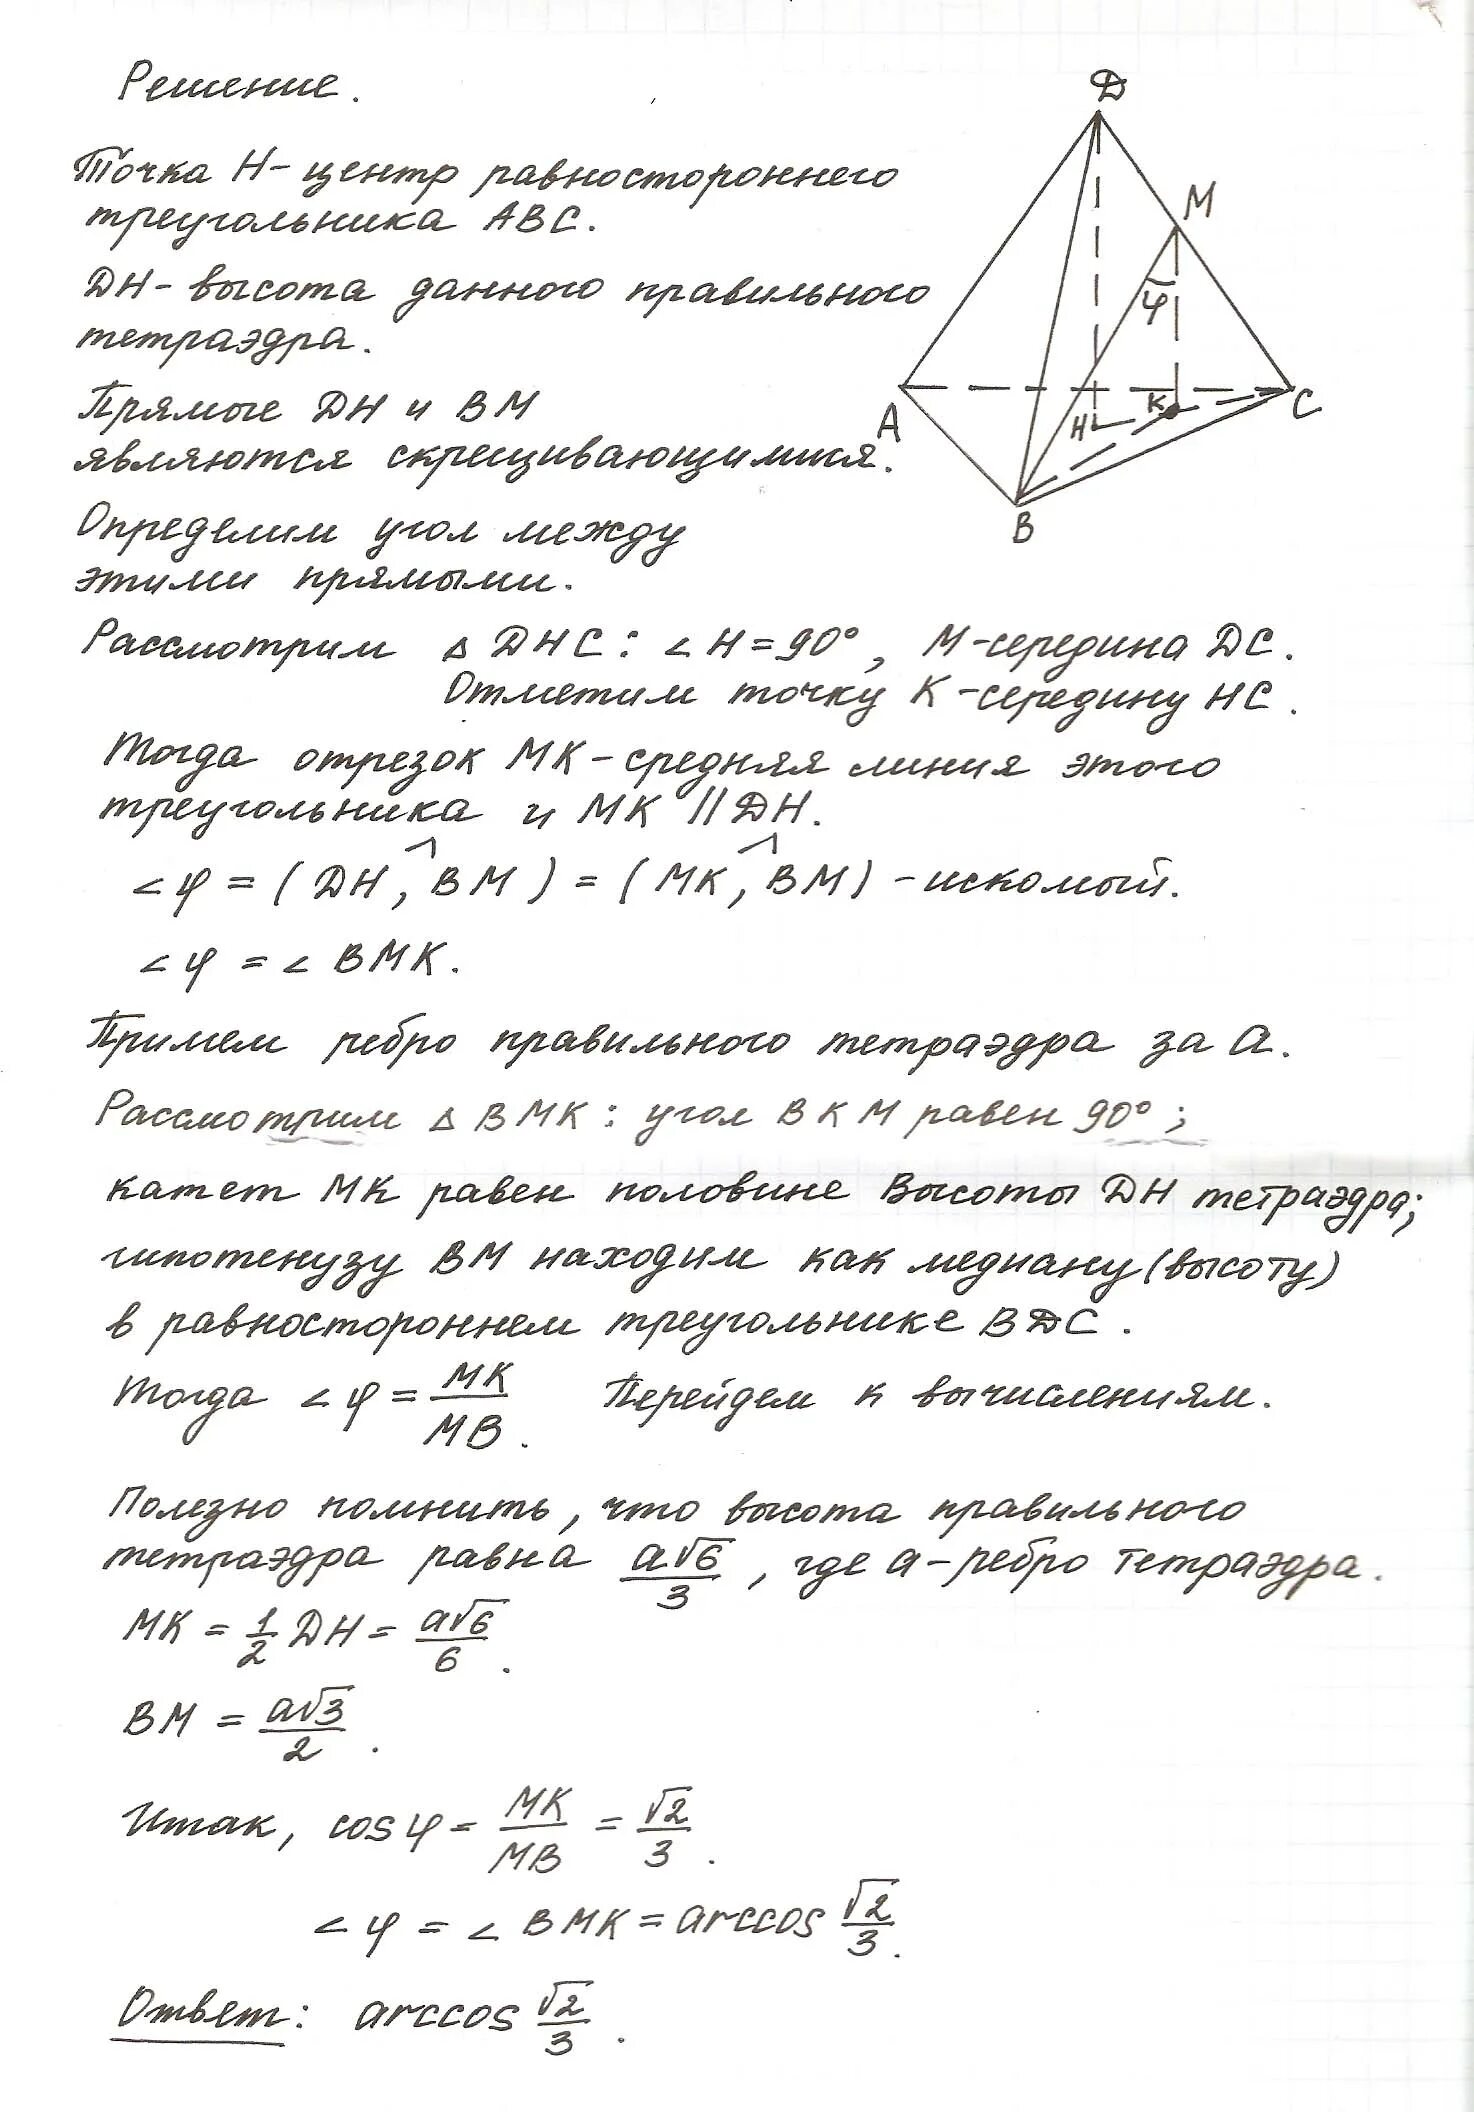 Решение.
Точка H - центр равностороннего
треугольника ABC.
DH - высота данного правильного
тетраэдра.
Прямые DH и BM
являются скрещивающимися.
Определим угол между
этими прямыми.
D
M
φ
A
H
K
C
B
Рассмотрим △ DHC: ∠H = 90°, M - середина DC.
Отметим точку K - середину HC.
Тогда отрезок MK - средняя линия этого
треугольника и MK || DH.
∠φ = (DH,^ BM) = (MK,^ BM) - искомый.
∠φ = ∠ BMK.
Примем ребро правильного тетраэдра за a.
Рассмотрим △ BMK: угол BKM равен 90°;
катет MK равен половине высоты DH тетраэдра;
гипотенузу BM находим как медиану (высоту)
в равностороннем треугольнике BDC.
Тогда ∠φ = MK/MB. Перейдем к вычислениям.
Полезно помнить, что высота правильного
тетраэдра равна a√6/3, где a - ребро тетраэдра.
MK = 1/2 DH = a√6/6.
BM = a√3/2.
Итак, cos φ = MK/MB = √2/3.
∠φ = ∠ BMK = arccos √2/3.
Ответ: arccos √2/3.